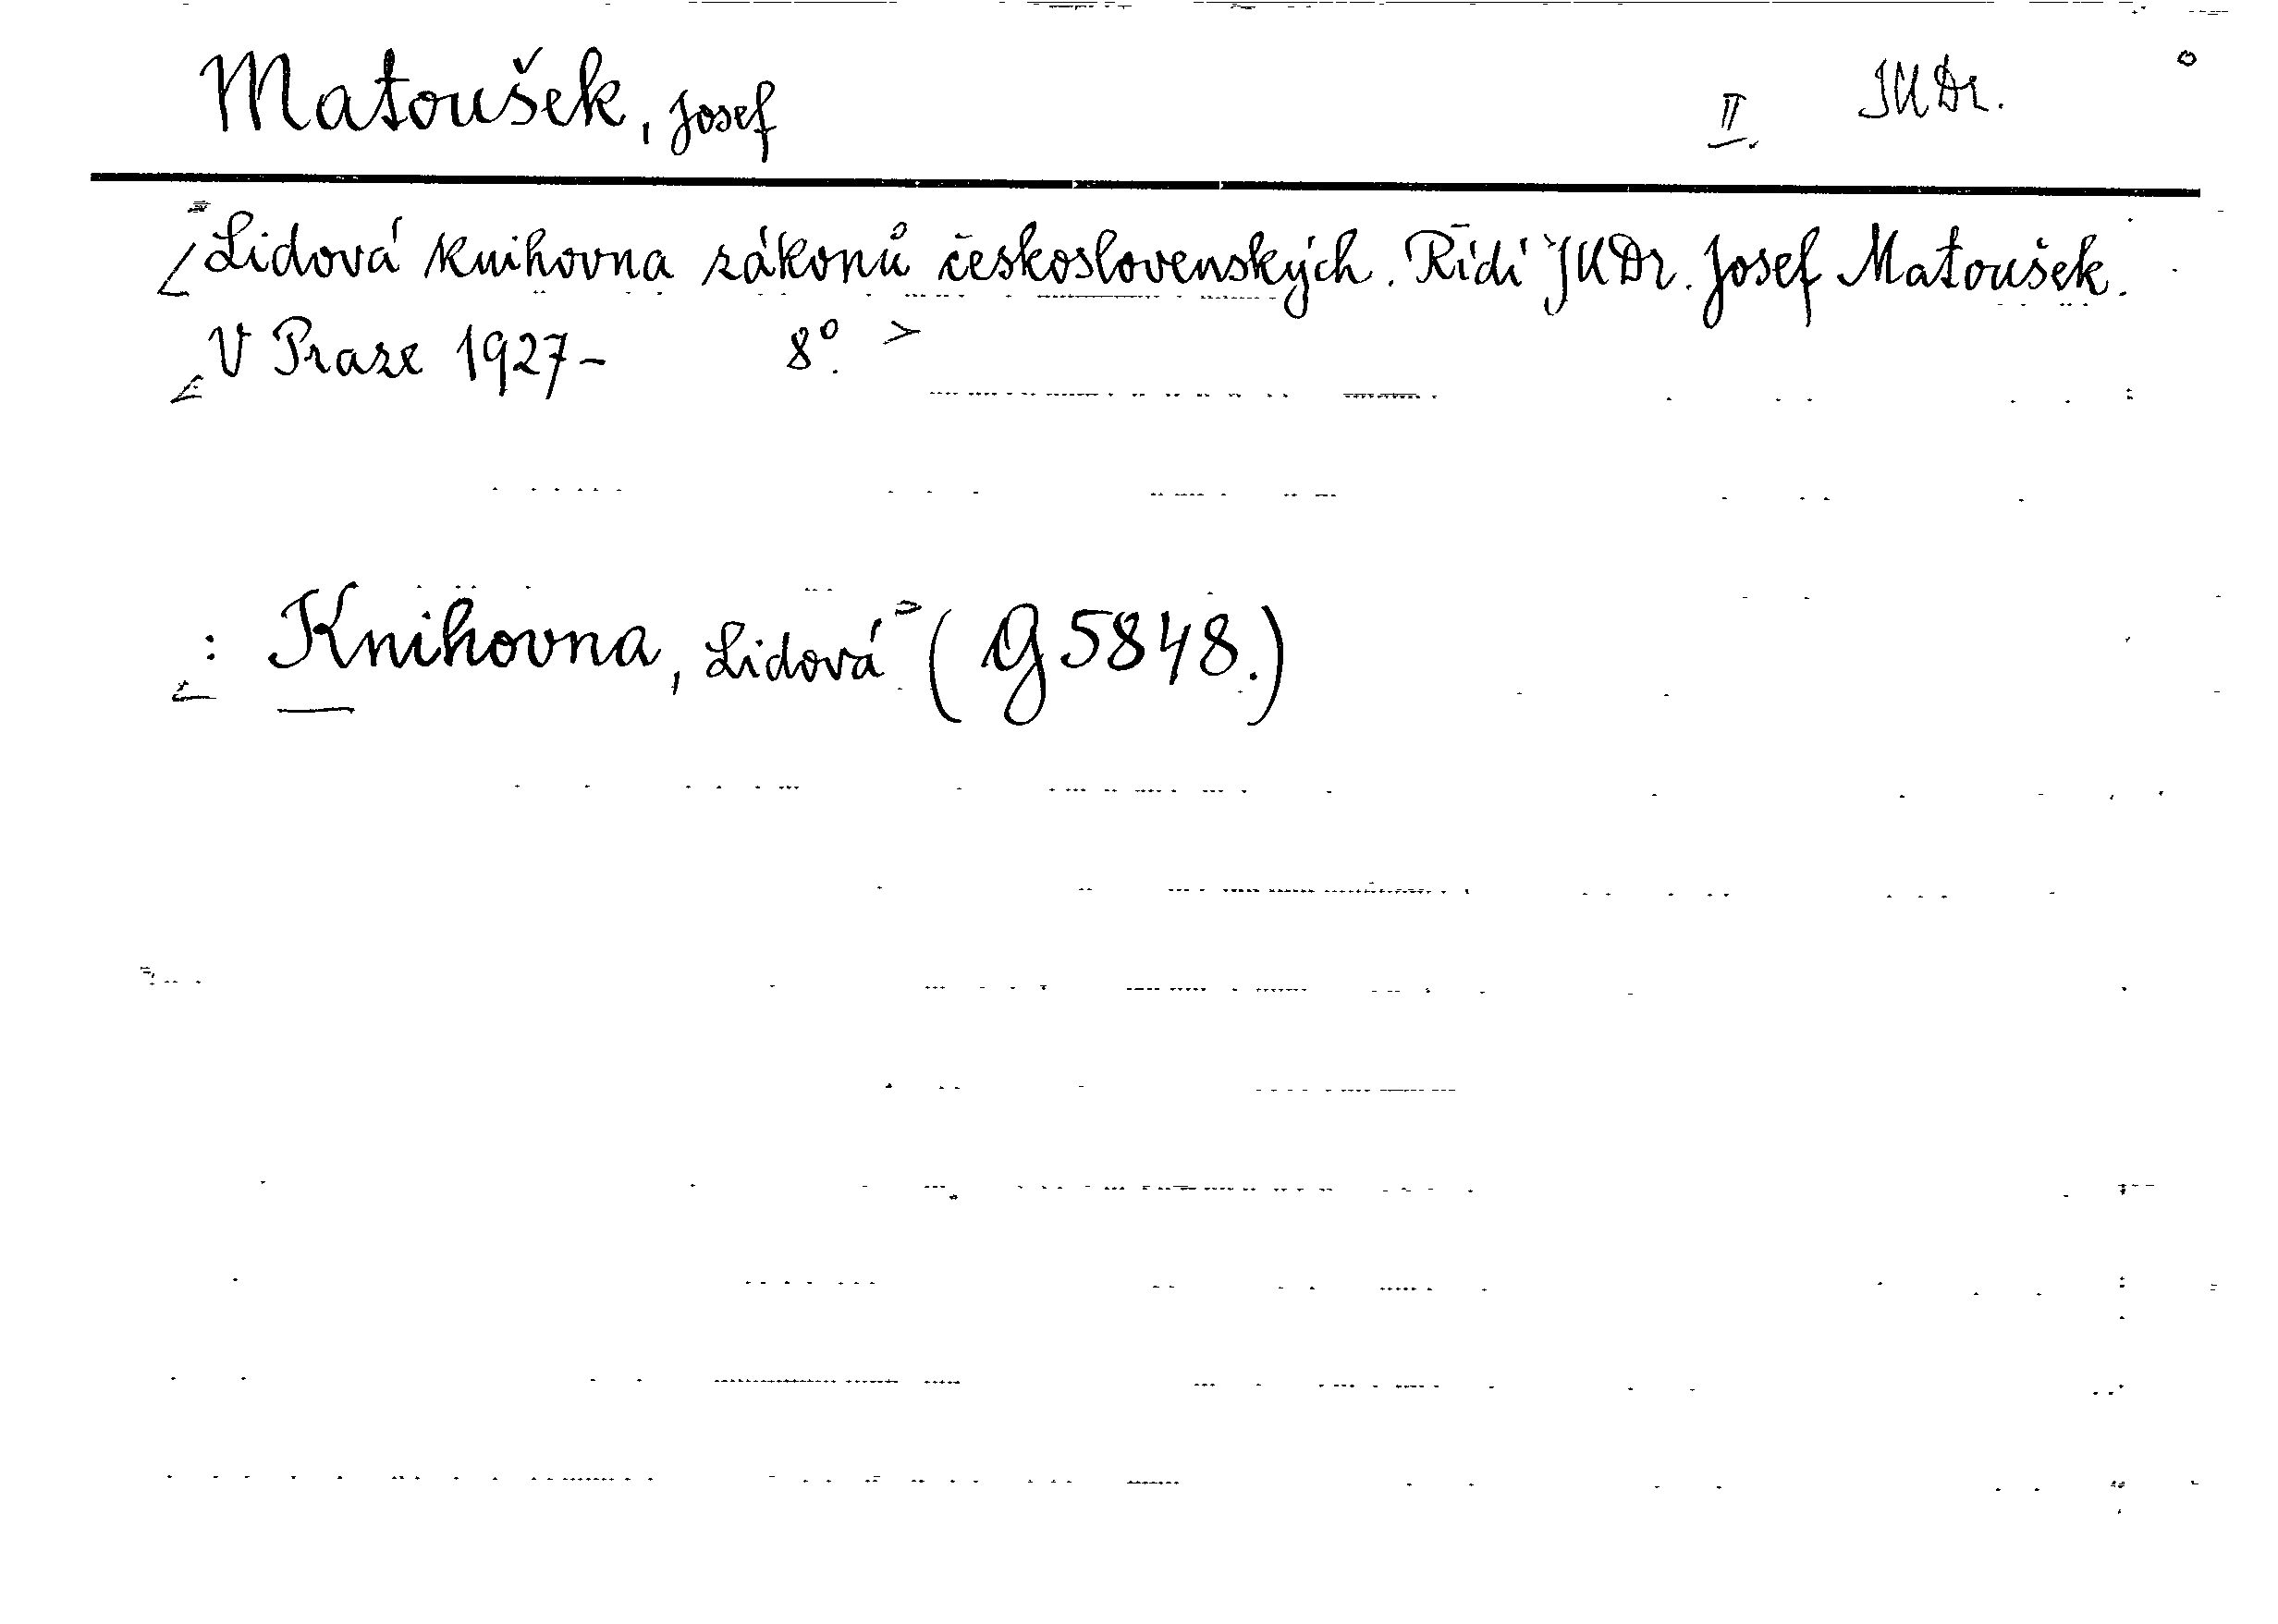 Matoušek, Josef II. JUDr.
Lidová knihovna zákonů československých. Řídí JUDr. Josef Matoušek.
V Praze 1927- 8°.
: Knihovna, Lidová (G 5848.)